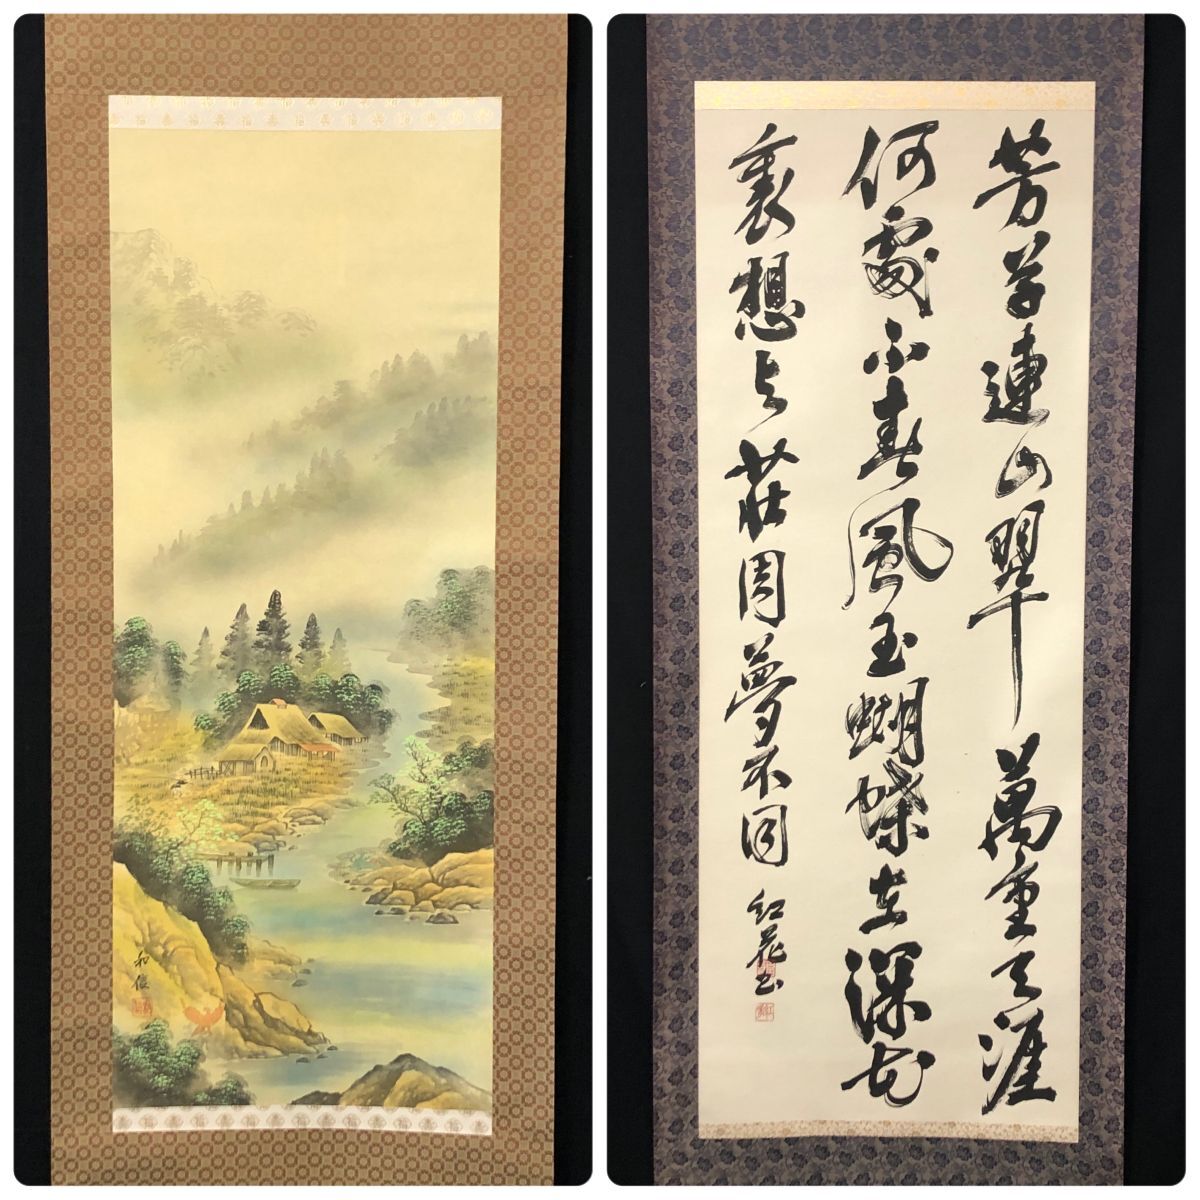 和俊
芳草連山翠萬重天涯
何處不春風玉蝴蝶在深花
裏想与莊周夢不同
紅花書